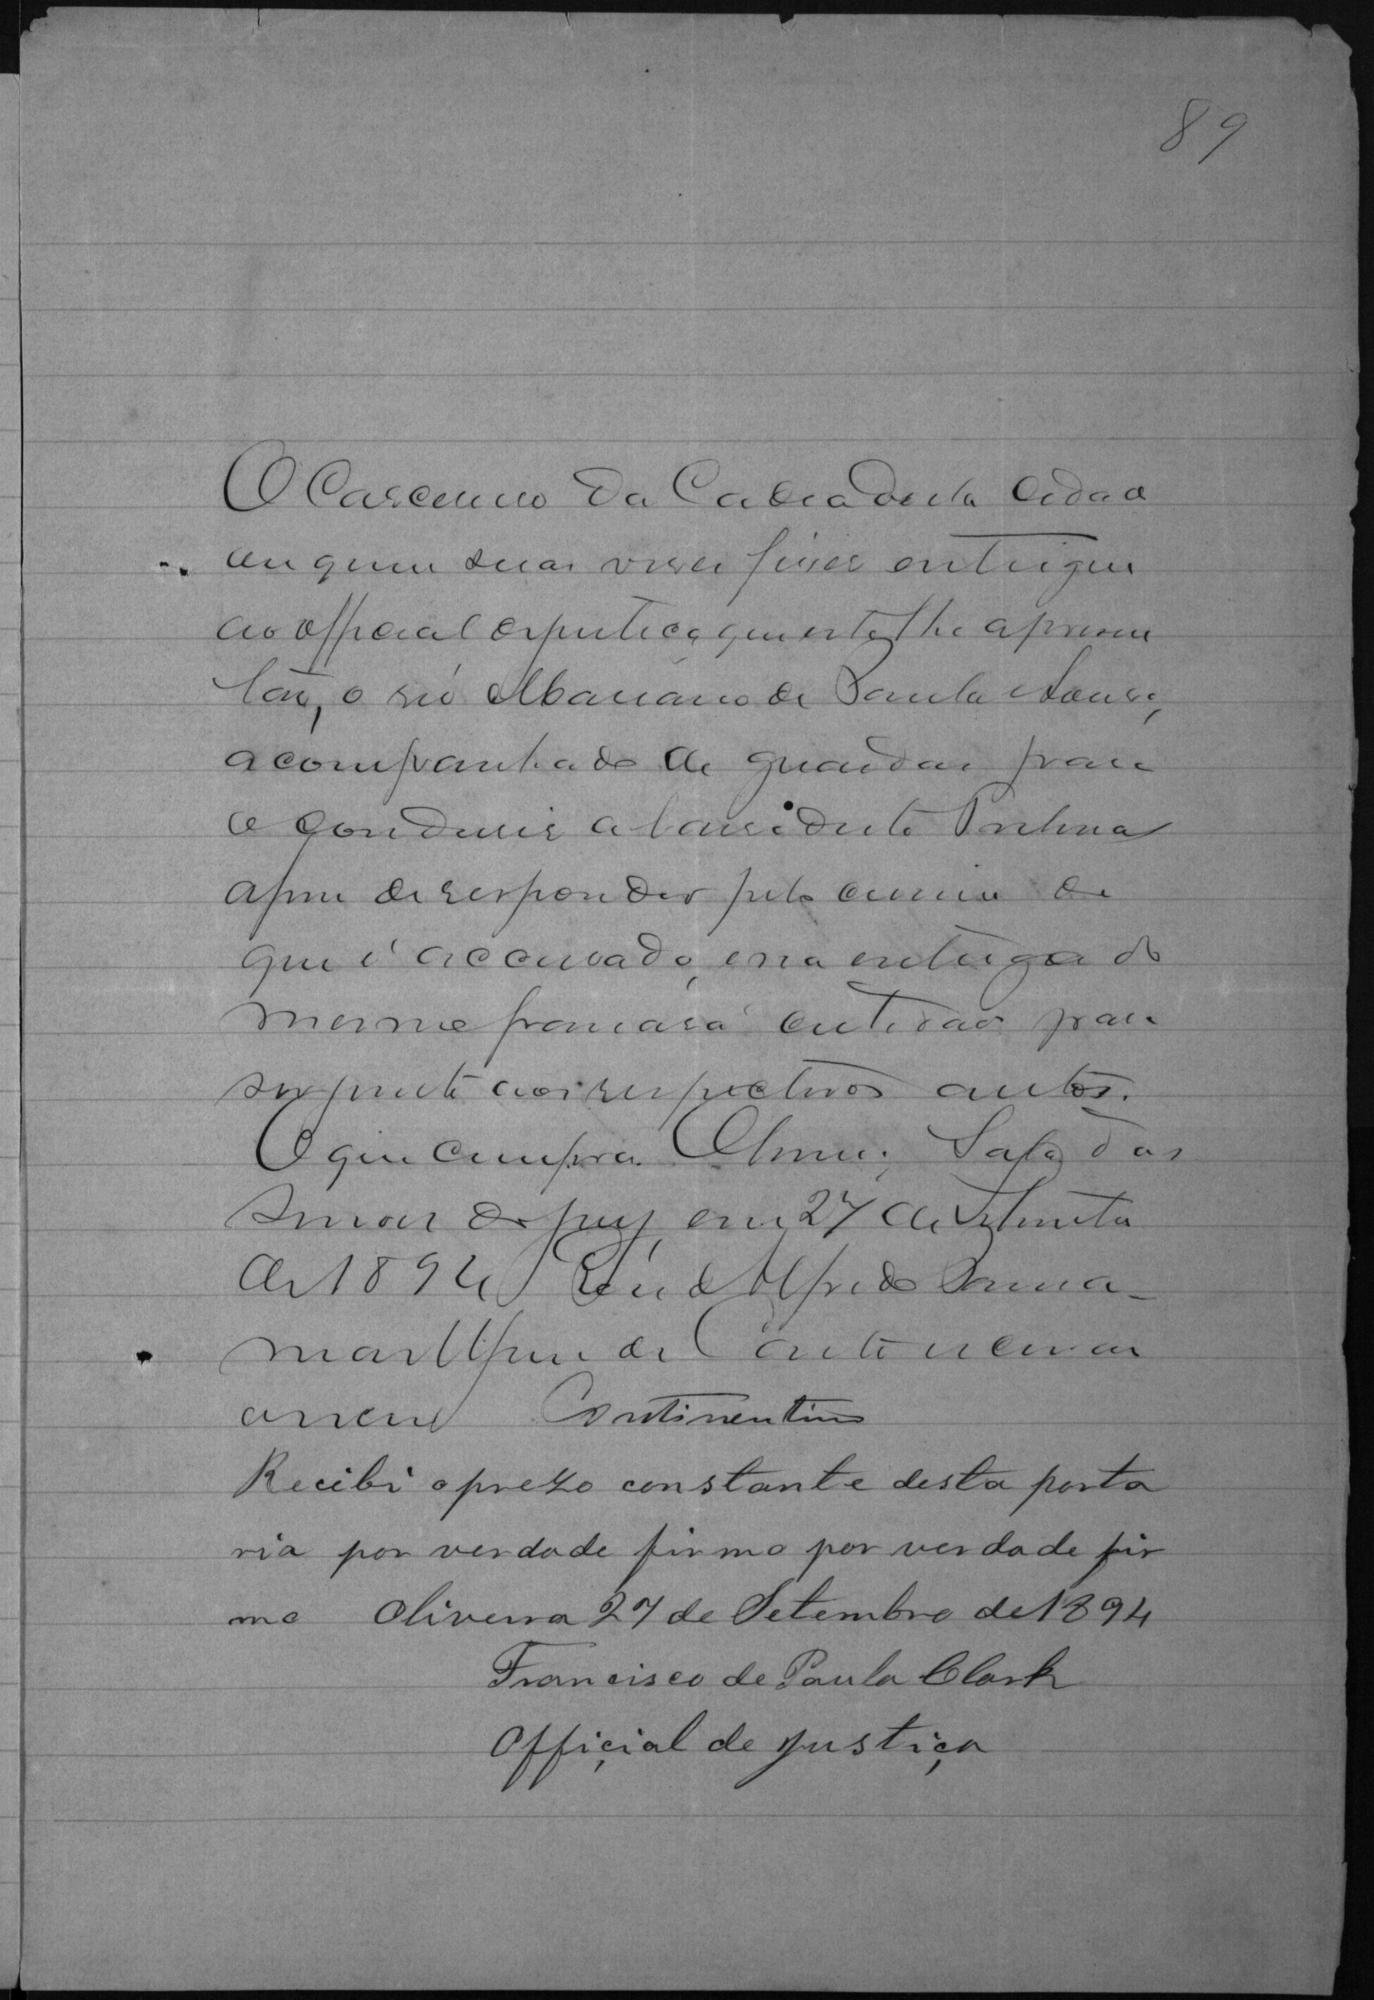 89
O Carcereiro da Cadea desta Cidade
ou quem suas veses fizer entregue
ao official de justiça que esta lhe apresen
tar, o réo Marianno de Paula
acompanhado de guardas para
o condusir a barra deste Tribunal
afim de responder pelo crime de
que é accusado, e na entrega do
mesmo passará certidão para
ser junta aos respectivos autos.
O que cumpra. Sala das
de jury, em 27 de Setembro
de 1894 Eu Alfredo
de
Continentino
Recibi o prezo constante desta porta
ria por verdade firmo por verdade fir
mo Oliveira 27 de Setembro de 1894
Francisco de Paula Clark
Official de justiça